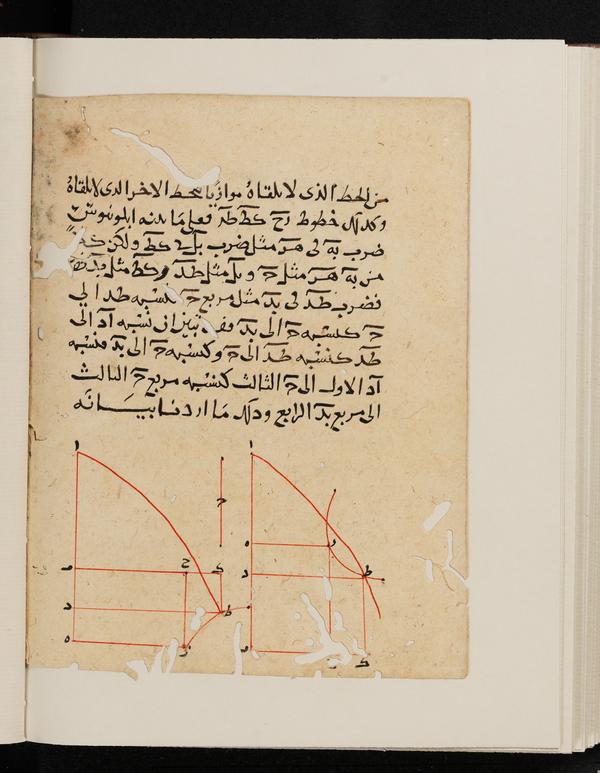 من الخط الذى لا يلقاه موازيا للخط الاخر الذى لا يلقاه
وكذلك خطوط زح حط طد فعلى ما بينه ابلونيوس
ضرب به فى هز مثل ضرب بك فى كط ولكن
من به هز مثل ح وبك مثل طد وكط مثل بد
فضرب طد فى بد مثل مربع ح فنسبه طد الى
ح كنسبه ح الى بد فقد تبين ان نسبه اد الى
طد كنسبه طد الى ح وكنسبه ح الى بد فنسبه
اد الاول الى ح الثالث كنسبه مربع ح الثالث
الى مربع بد الرابع وذلك ما اردنا بيانه
ا
ا
ح
ه
ز
د
ط
ب
ح
ك
د
ط
ه
ز
ب
ك